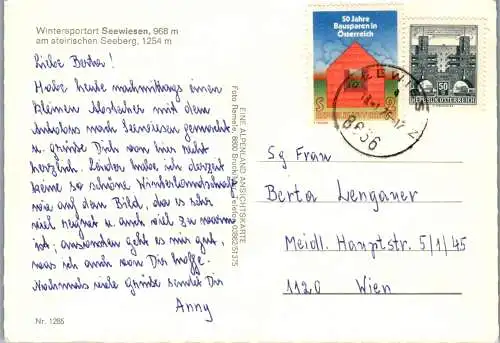 Wintersportort Seewiesen, 968 m
am steirischen Seeberg, 1254 m
Liebe Berta!
Habe heute nachmittags einen
kleinen Abstecher mit dem
Autobus nach Seewiesen gemacht
u. grüße Dich von hier recht
herzlich. Leider habe ich derzeit
keine so schöne Winterlandschaft
wie auf dem Bild, da es sehr
viel regnet u. auch viel zu warm
ist; ansonsten geht es mir gut,
was ich auch von Dir hoffe.
Nochmals viele Grüße sendet Dir
Anny
Nr. 1285
EINE ALPENLAND ANSICHTSKARTE
Foto Remele, 8600 Bruck/M., Telefon 03862/51375
50 Jahre
Bausparen in
Österreich
S
REPUBLIK ÖSTERREICH
50
REPUBLIK ÖSTERREICH
8636
Sg Frau
Berta Lenganer
Meidl. Hauptstr. 5/1/45
1120 Wien